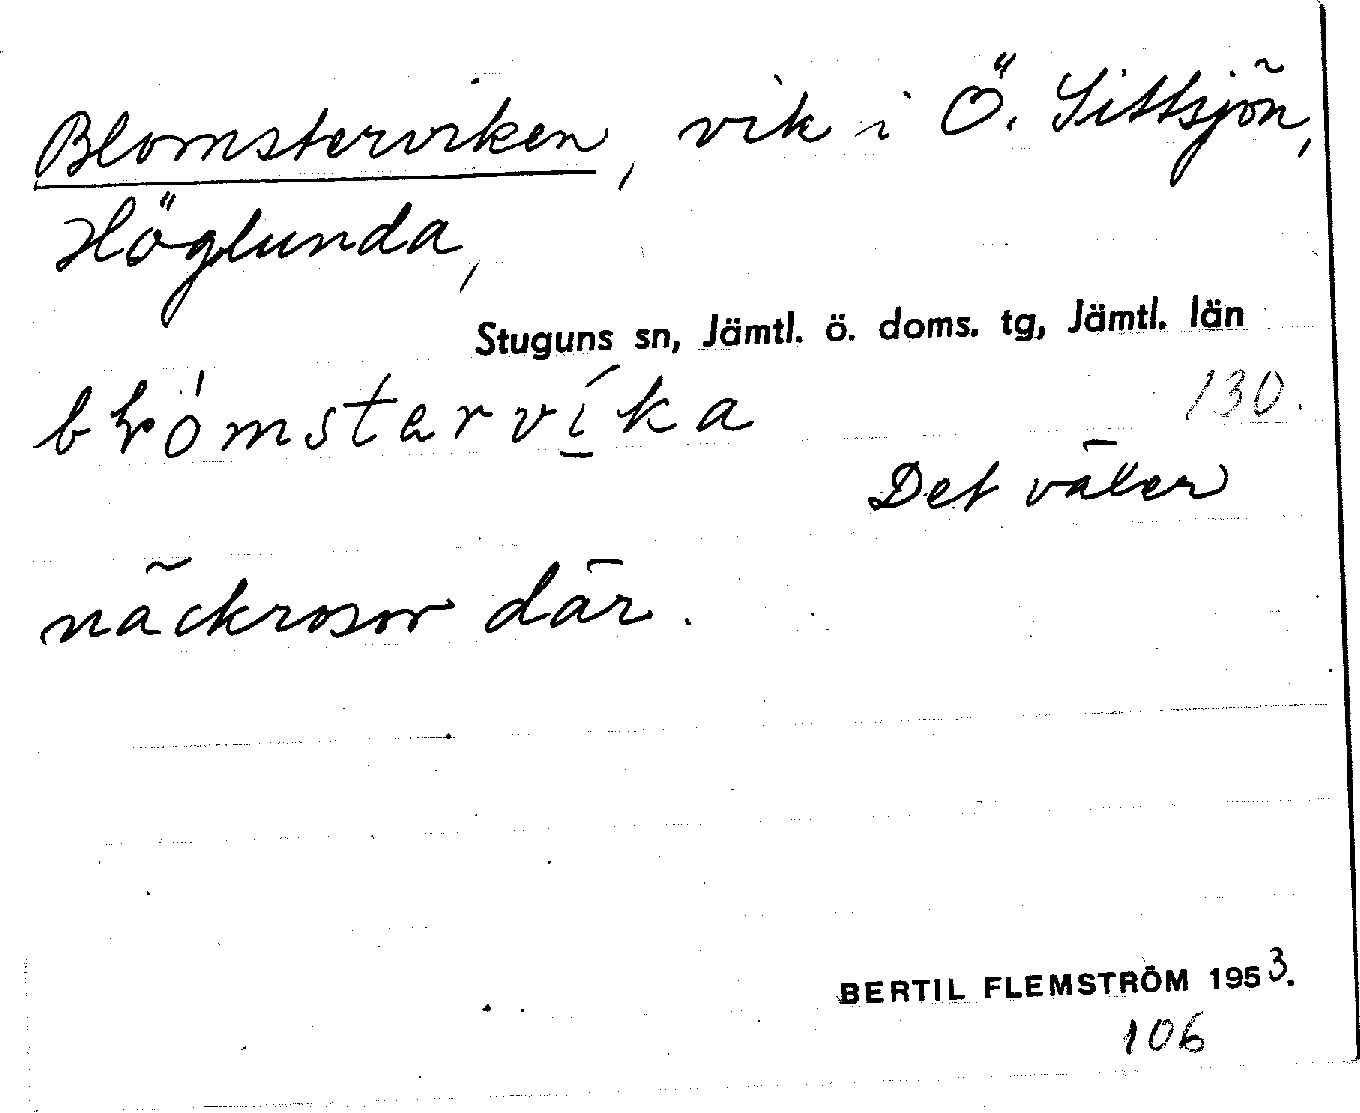 Blomsterviken, vik i Ö. Sittsjön,
Höglunda,
Stuguns sn, Jämtl. ö. doms. tg, Jämtl. län
130.
Det väller
näckrosor där.
BERTIL FLEMSTRÖM 1953.
106